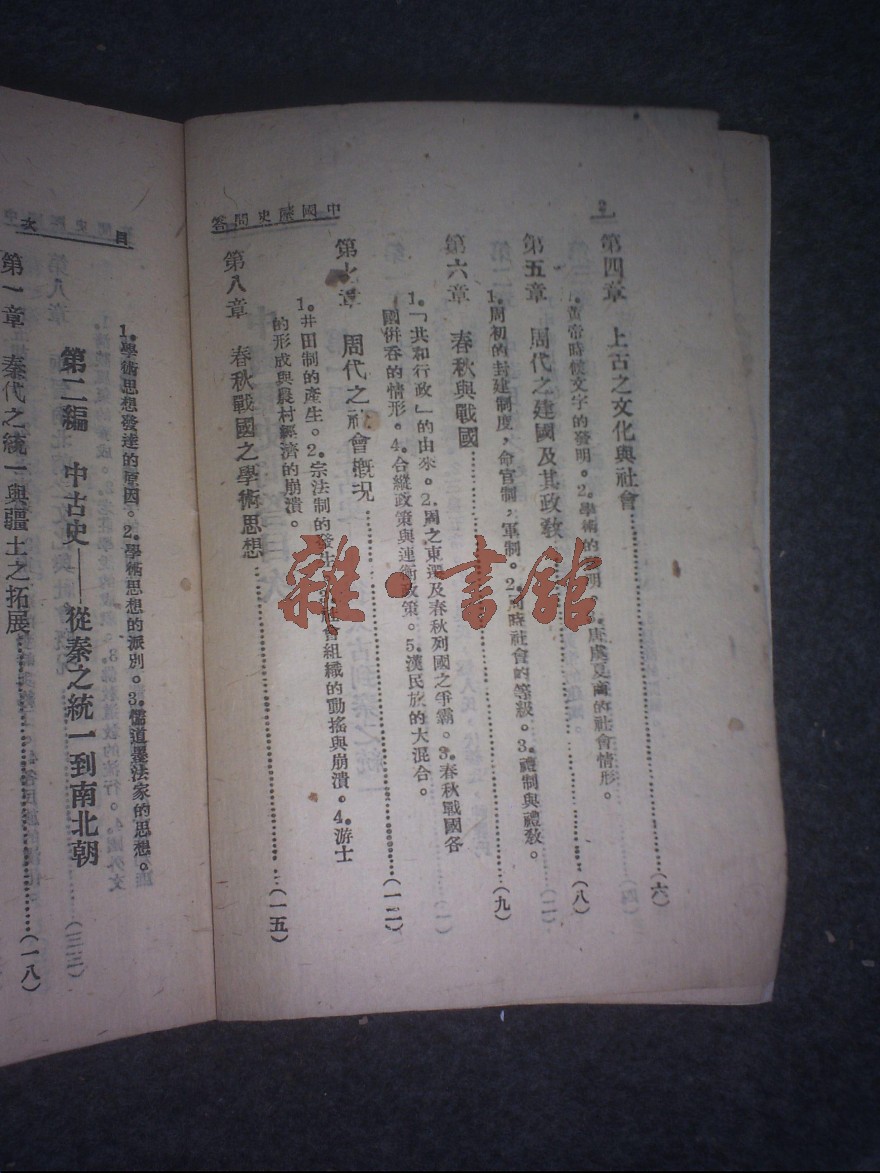 2
中國歷史問答
第四章　上古之文化與社會……(六)
1.黃帝時候文字的發明。2.學術的發明。3.唐虞夏商的社會情形。
第五章　周代之建國及其政教……(八)
1.周初的封建制度，命官制，軍制。2.周時社會的等級。3.禮制與禮教。
第六章　春秋與戰國……(九)
1.「共和行政」的由來。2.周之東遷及春秋列國之爭霸。3.春秋戰國各
國併吞的情形。4.合縱政策與連衡政策。5.漢民族的大混合。
第七章　周代之社會概況……(一二)
1.井田制的產生。2.宗法制的發生。社會組織的動搖與崩潰。4.游士
的形成與農村經濟的崩潰。
第八章　春秋戰國之學術思想……(一五)
目次
1.學術思想發達的原因。2.學術思想的派別。3.儒道墨法家的思想。
第二編　中古史——從秦之統一到南北朝
第一章　秦代之統一與疆土之拓展……(一八)
雜·書館